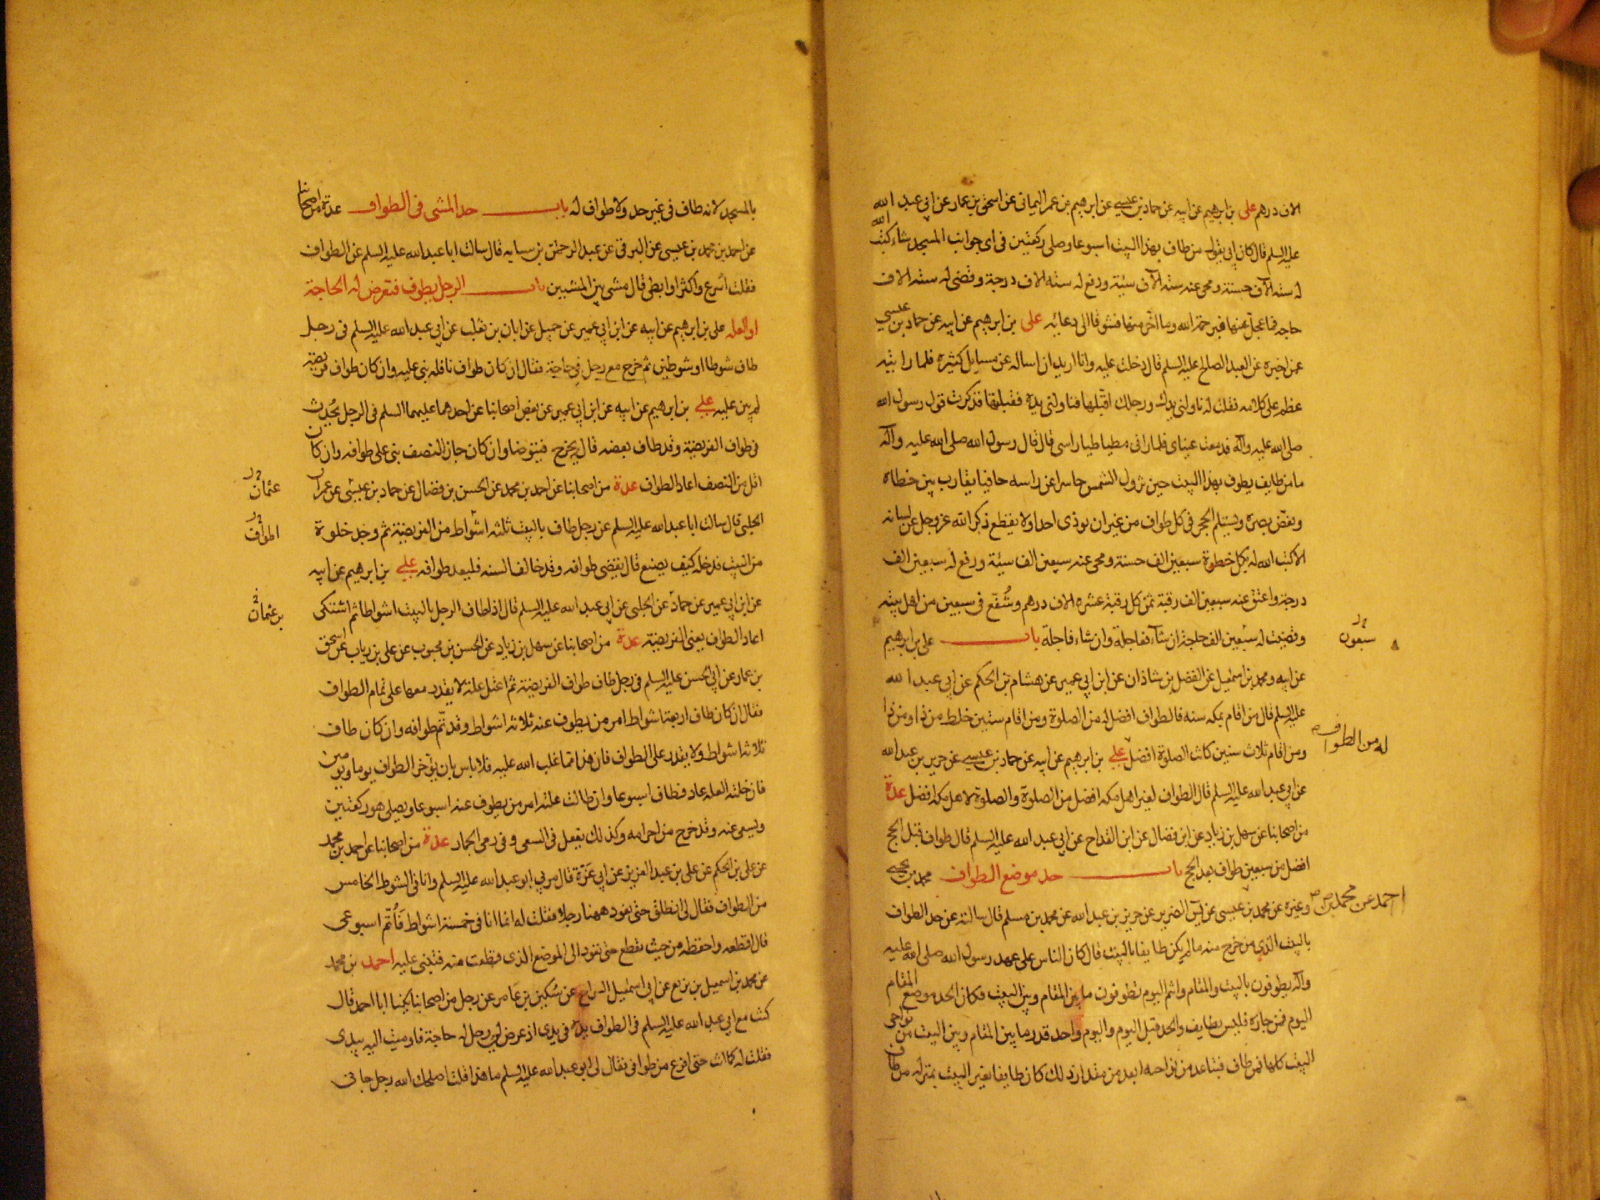 الاف درهم علی بن ابرهیم عن ابیه عن حماد بن عیسی عن ابرهیم بن عمر الیمانی عن اسحق بن عمار عن ابی عبد الله
علیه السلم قال کان ابی یقول من طاف بهذا البیت اسبوعا وصلی رکعتین فی ای جوانب المسجد شاء کتب الله
له ستة آلاف حسنة ومحی عنه ستة آلاف سیئة ورفع له ستة الاف درجة وقضی له ستة الاف
حاجة فما عجل منها فبرحمة الله وما اخر منها فشوقا الی دعائه علی بن ابرهیم عن ابیه عن حماد بن عیسی
عمن اخبره عن العبد الصالح علیه السلم قال دخلت علیه وانا ارید ان اساله عن مسایل کثیرة فلما رایته
عظم علی کلامه فقلت له ناولنی یدک ورجلک اقبلها فناولنی یده فقبلتها فذکرت قول رسول الله
صلی الله علیه وآله فدمعت عینای فلما رانی مطاطیا راسی قال قال رسول الله صلی الله علیه وآله
ما من طایف یطوف بهذا البیت حین تزول الشمس حاسرا عن راسه حافیا یقارب بین خطاه
ویغض بصره ویستلم الحجر فی کل طواف من غیر ان یوذی احدا ولا یقطع ذکر الله عز وجل عن لسانه
الا کتب الله له بکل خطوة سبعین الف حسنة ومحی عنه سبعین الف سیئة ورفع له سبعین الف
درجة واعتق عنه سبعین الف رقبة ثمن کل رقبة عشرة الاف درهم وشفع فی سبعین من اهل بیته
وقضیت له سبعین الف حاجة ان شآء فعاجلة وان شاء فاجلة باب علی بن ابرهیم
سبعون
عن ابیه ومحمد بن اسمعیل عن الفضل بن شاذان عن ابن ابی عمیر عن هشام بن الحکم عن ابی عبد الله
علیه السلم قال من اقام بمکه سنة فالطواف افضل له من الصلوة ومن اقام سنتین خلط من ذا ومن ذا
له من الطواف
ومن اقام ثلاث سنین کانت الصلوة افضل علی بن ابرهیم عن ابیه عن حماد بن عیسی عن حریز بن عبد الله
عن ابی عبد الله علیه السلم قال الطواف لغیر اهل مکه افضل من الصلوة والصلوة لاهل مکه افضل عدة
من اصحابنا عن سهل بن زیاد عن ابن فضال عن ابن القداح عن ابی عبد الله علیه السلم قال طواف قبل الحج
افضل من سبعین طواف بعد الحج باب حد موضع الطواف محمد بن یحیی
احمد عن محمد بن
وغیره عن محمد بن عیسی عن یس الضریر عن حریز بن عبد الله عن محمد بن مسلم قال سالته عن حد الطواف
بالبیت الذی من خرج منه لم یکن طایفا بالبیت قال کان الناس علی عهد رسول الله صلی الله علیه
وآله یطوفون بالبیت والمقام وانتم الیوم تطوفون ما بین المقام وبین البیت فکان الحد موضع المقام
الیوم فمن جازه فلیس بطایف والحد قبل الیوم والیوم واحد قدر ما بین المقام وبین البیت من نواحی
البیت کلها فمن طاف فتباعد من نواحیه ابعد من مقدار ذلک کان طایفا بغیر البیت بمنزلة من طاف
بالمسجد لانه طاف فی غیر حد ولا طواف له باب حد المشی فی الطواف عدة من اصحابنا
عن احمد بن محمد بن عیسی عن البرقی عن عبد الرحمن بن سیابه قال سالت ابا عبد الله علیه السلم عن الطواف
فقلت أسرع واکثر او ابطی قال مشی بین المشیین باب الرجل یطوف فتعرض له الحاجة
او العله علی بن ابرهیم عن ابیه عن ابن ابی عمیر عن جمیل عن ابان بن تغلب عن ابی عبد الله علیه السلم فی رجل
طاف شوطا او شوطین ثم خرج مع رجل فی حاجة فقال ان کان طواف نافلة بنی علیه وان کان طواف فریضة
لم یبن علیه علی بن ابرهیم عن ابیه عن ابن ابی عمیر عن بعض اصحابنا عن احدهما علیهما السلم فی الرجل یحدث
فی طواف الفریضة وقد طاف بعضه قال یخرج فیتوضا وان کان جاز النصف بنی علی طوافه وان کان
اقل من النصف اعاد الطواف عدة من اصحابنا عن احمد بن محمد عن الحسن بن فضال عن حماد بن عیسی عن عمران
عثمان
الحلبی قال سالت ابا عبد الله علیه السلم عن رجل طاف بالبیت ثلثة اشواط من الفریضة ثم وجد خلوة
الطواف
من البیت فدخله کیف یصنع قال یقضی طوافه وقد خالف السنه فلیعد طوافه علی بن ابرهیم عن ابیه
عن ابن ابی عمیر عن حماد عن الحلبی عن ابی عبد الله علیه السلم قال اذا طاف الرجل بالبیت اشواطا ثم اشتکی
بن عثمان
اعاد الطواف یعنی الفریضة عدة من اصحابنا عن سهل بن زیاد عن الحسن بن محبوب عن علی بن ریاب عن اسحق
بن عمار عن ابی الحسن علیه السلم فی رجل طاف طواف الفریضة ثم اعتل علة لا یقدر معها علی تمام الطواف
فقال ان کان طاف اربعة اشواط امر من یطوف عنه ثلاثة اشواط وقد تم طوافه وان کان طاف
ثلاثة اشواط ولا یقدر علی الطواف فان هذا مما غلب الله علیه فلا باس بان یؤخر الطواف یوما ویومین
فان خلته العله عاد فطاف اسبوعا وان طالت علته امر من یطوف عنه اسبوعا ویصلی هو رکعتین
ویسعی عنه وقد خرج من احرامه وکذلک یفعل فی السعی وفی رمی الجمار عدة من اصحابنا عن احمد بن محمد
عن علی بن الحکم عن علی بن عبد العزیز عن ابی عزة قال مر بی ابو عبد الله علیه السلم وانا فی الشوط الخامس
من الطواف فقال لی انطلق حتی نعود ههنا رجلا فقلت له انما انا فی خمسة اشواط فأتم اسبوعی
قال اقطعه واحفظه من حیث تقطع حتی تعود الی الموضع الذی قطعت منه فتبنی علیه احمد بن محمد
عن محمد بن اسمعیل بن بزیع عن ابی اسمعیل السراج عن سکین بن عمار عن رجل من اصحابنا یکنی ابا احمد قال
کنت مع ابی عبد الله علیه السلم فی الطواف یده فی یدی اذ عرض لی رجل له حاجة فاومیت الیه بیدی
فقلت له کما انت حتی افرغ من طوافی فقال لی ابو عبد الله علیه السلم ما هذا فقلت اصلحک الله رجل جانی